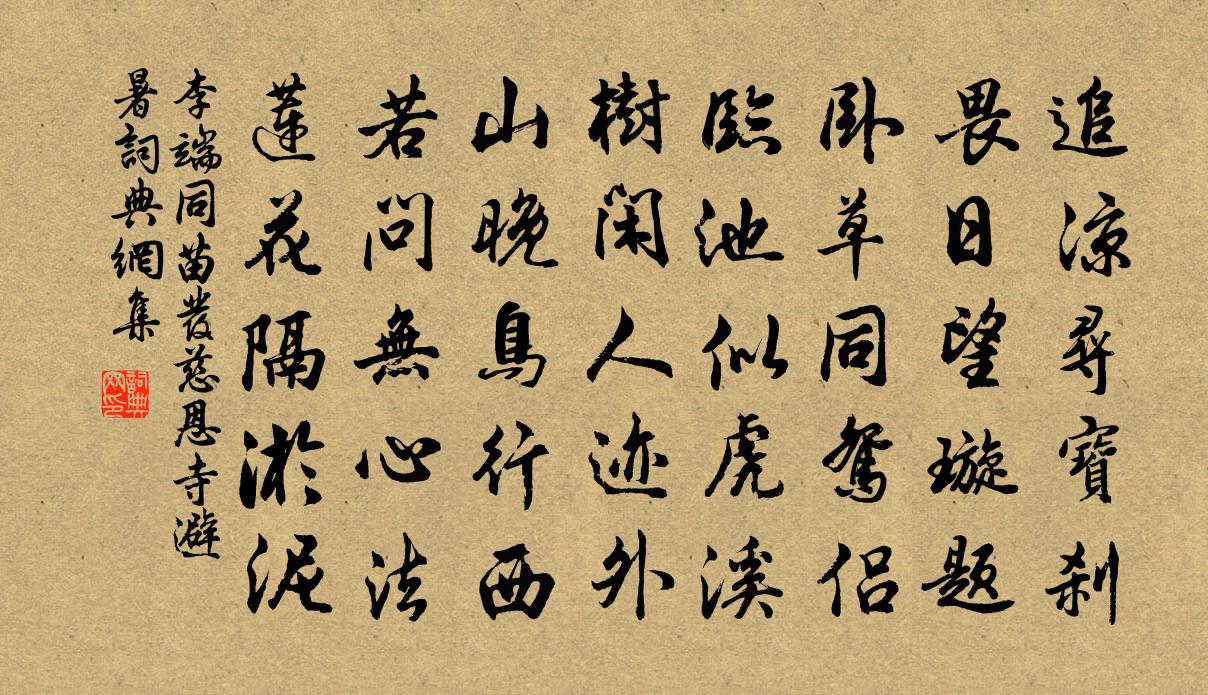 追涼尋寶刹
畏日望璇題
臥草同鴛侶
臨池似虎溪
樹閑人迹外
山晚鳥行西
若問無心法
蓮花隔淤泥
李端同苗發慈恩寺避
暑詞典網集
詞典
网印